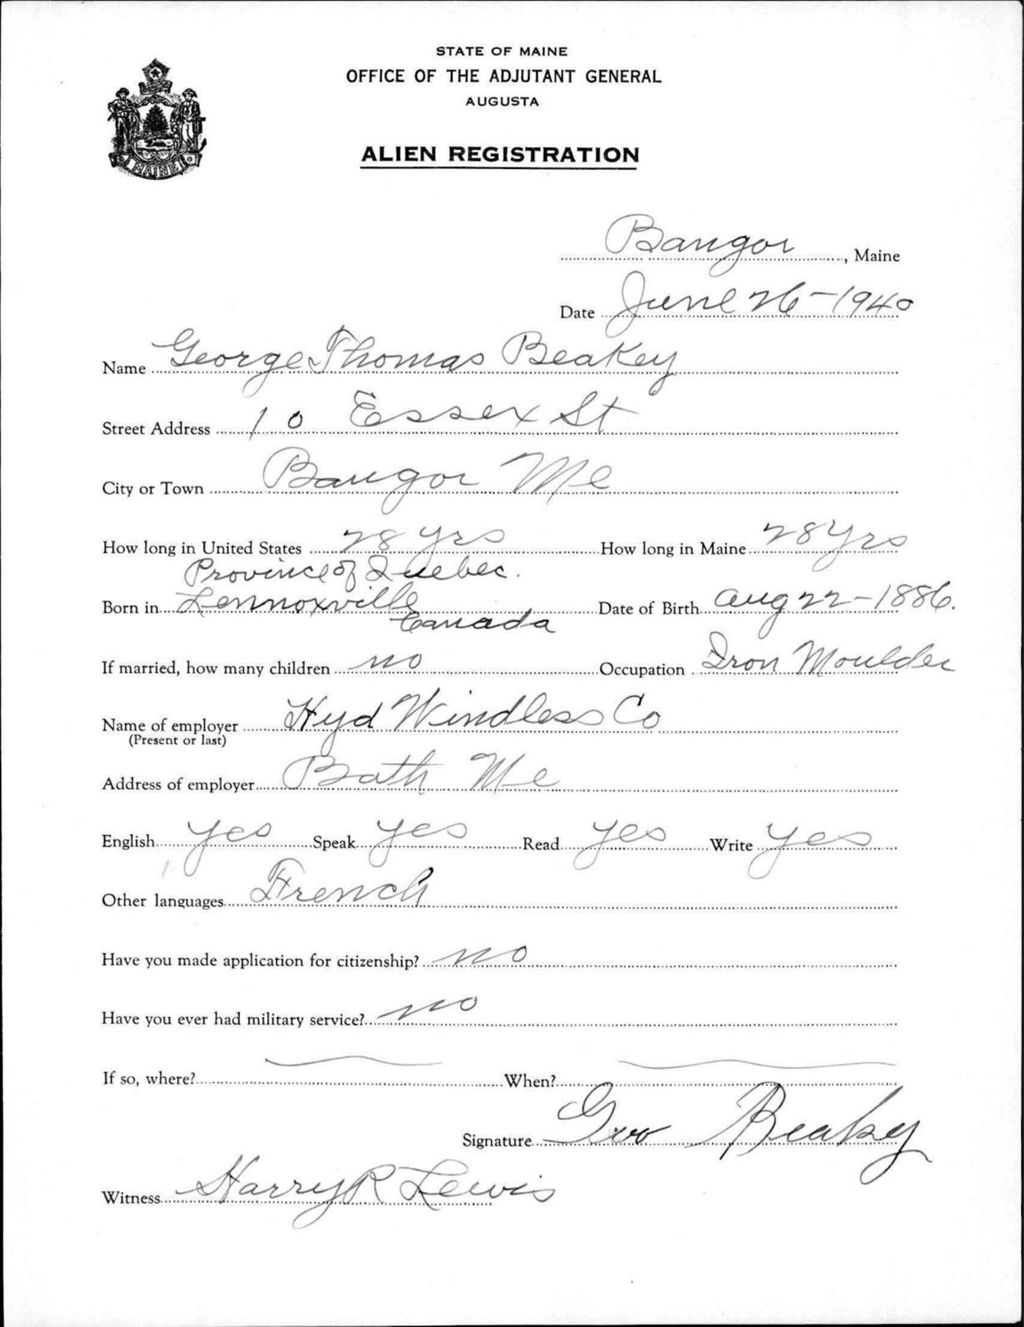 STATE OF MAINE
OFFICE OF THE ADJUTANT GENERAL
AUGUSTA
ALIEN REGISTRATION
MAINE
Bangor, Maine
Date June 26-1940
Name George Thomas Beakey
Street Address 10 Essex St
City or Town Bangor Me
How long in United States 28 yrs How long in Maine 28 yrs
Province of Quebec.
Born in Lennoxville Date of Birth Aug 22-1886.
Canada
If married, how many children no Occupation Iron Moulder
Name of employer Hyd Windless Co
(Present or last)
Address of employer Bath Me
English yes Speak yes Read yes Write yes
Other languages French
Have you made application for citizenship? no
Have you ever had military service? no
If so, where? When?
Signature Geo Beakey
Witness Harry R Lewis